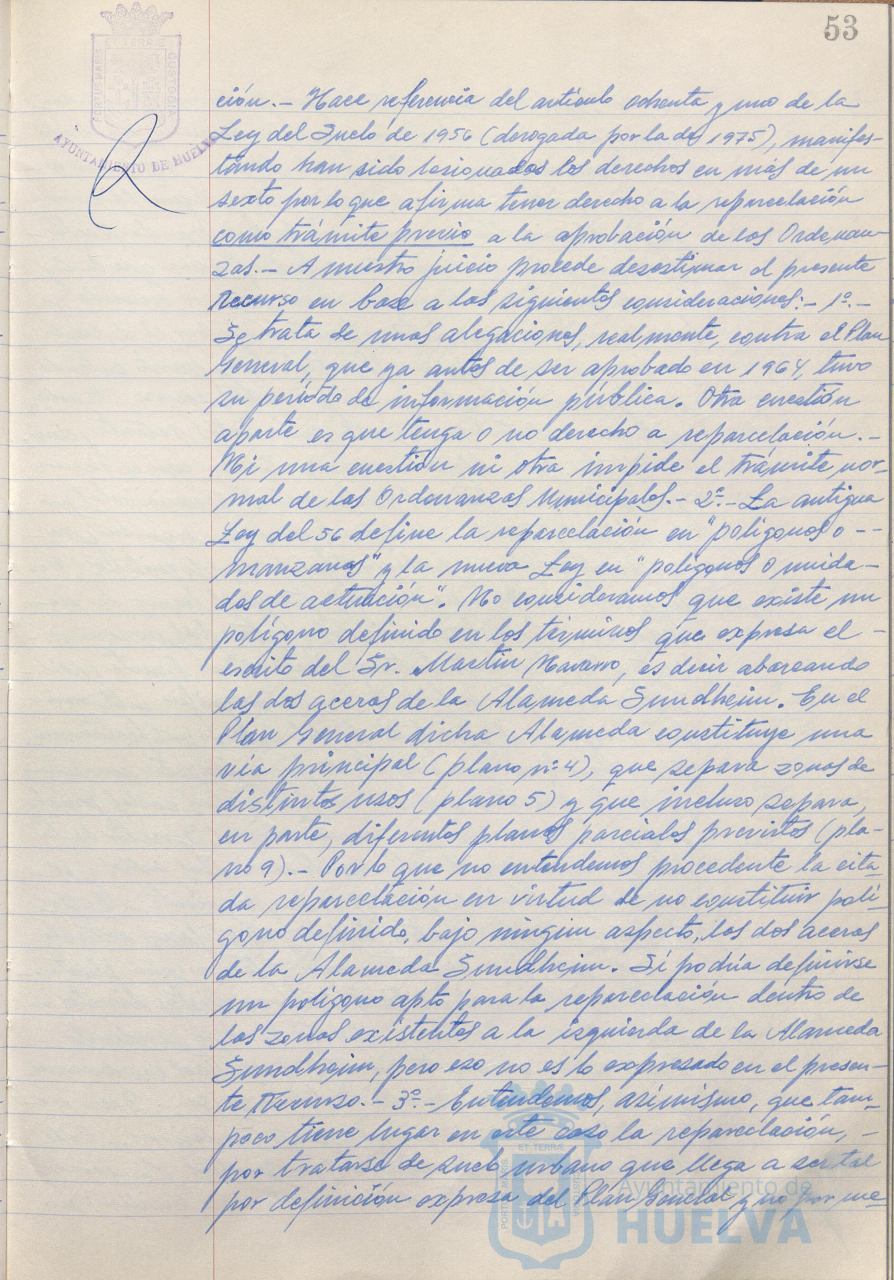 53
PORTUS MARIS ET TERRAE CUSTODIA
AYUNTAMIENTO DE HUELVA
ción.- Hace referencia del artículo ochenta y uno de la
Ley del Suelo de 1956 (derogada por la de 1975), manifes-
tando han sido lesionados los derechos en más de un
sexto por lo que afirma tener derecho a la reparcelación
como trámite previo a la aprobación de los Ordenan-
zas.- A nuestro juicio procede desestimar el presente
recurso en base a las siguientes consideraciones:- 1º.-
Se trata de unas alegaciones, realmente, contra el Plan
General, que ya antes de ser aprobado en 1964, tuvo
su período de información pública. Otra cuestión
aparte es que tenga o no derecho a reparcelación.-
Ni una cuestión ni otra impide el trámite nor-
mal de las Ordenanzas Municipales.- 2º.- La antigua
Ley del 56 define la reparcelación en "polígonos o --
manzanas" y la nueva Ley en "polígonos o unida-
des de actuación". No consideramos que existe un
polígono definido en los términos que expresa el -
escrito del Sr. Martín Navarro, es decir abarcando
las dos aceras de la Alameda Sundheim. En el
Plan General dicha Alameda constituye una
vía principal (plano nº 4), que separa zonas de
distintos usos (plano 5) y que incluso separa,
en parte, diferentes planes parciales previstos (pla-
no 9).- Por lo que no entendemos procedente la cita-
da reparcelación en virtud de no constituir polí-
gono definido, bajo ningún aspecto, las dos aceras
de la Alameda Sundheim. Sí podría definirse
un polígono apto para la reparcelación dentro de
las zonas existentes a la izquierda de la Alameda
Sundheim, pero eso no es lo expresado en el presen-
te recurso.- 3º.- Entendemos, asimismo, que tam-
poco tiene lugar en este caso la reparcelación, -
por tratarse de suelo urbano que llega a ser tal
por definición expresa del Plan General y no por me-
PORTUS MARIS ET TERRA CUSTODIA
Ayuntamiento de
HUELVA